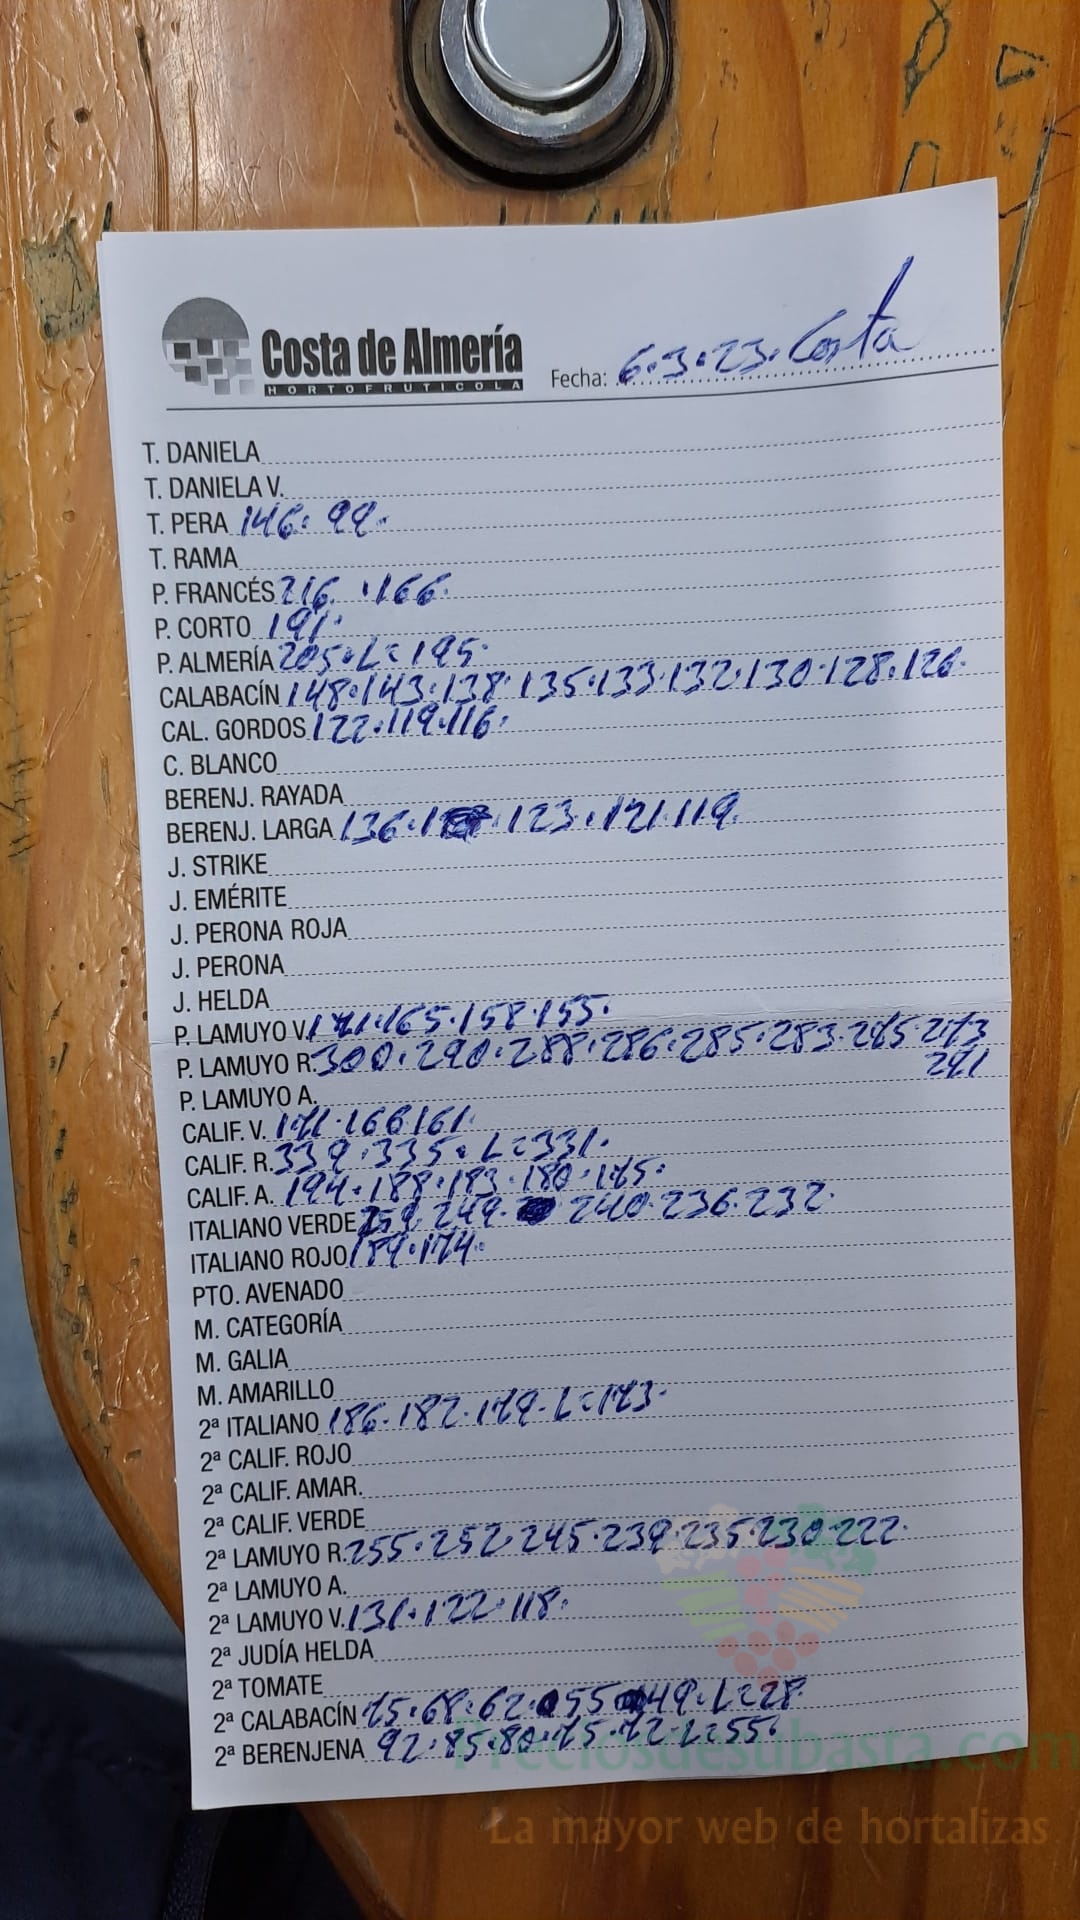 Costa de Almería
HORTOFRUTICOLA
Fecha: 6.3.23. Costa
T. DANIELA
T. DANIELA V.
T. PERA 146. 99.
T. RAMA
P. FRANCÉS 216. 166.
P. CORTO 191.
P. ALMERÍA 205. L=195.
CALABACÍN 148.143.138.135.133.132.130.128.126.
CAL. GORDOS 122.119.116.
C. BLANCO
BERENJ. RAYADA
BERENJ. LARGA 136. 123.121.119.
J. STRIKE
J. EMÉRITE
J. PERONA ROJA
J. PERONA
J. HELDA
P. LAMUYO V. 171.165.158.155.
P. LAMUYO R. 300.290.288.286.285.283.275.273
271
P. LAMUYO A.
CALIF. V. 171.166.161.
CALIF. R. 339.335. L=331.
CALIF. A. 194.188.183.180.175.
ITALIANO VERDE 259. 249. 240.236.232.
ITALIANO ROJO 174.
PTO. AVENADO
M. CATEGORÍA
M. GALIA
M. AMARILLO
2ª ITALIANO 186.182.179. L=173.
2ª CALIF. ROJO
2ª CALIF. AMAR.
2ª CALIF. VERDE
2ª LAMUYO R. 255.252.245.239.235.230.222.
2ª LAMUYO A.
2ª LAMUYO V. 131.122.118.
2ª JUDÍA HELDA
2ª TOMATE
2ª CALABACÍN 75.68.62. 55. 49. L=28.
2ª BERENJENA 92.85.80.75.72. L=55.
Preciosdesubasta.com
La mayor web de hortalizas